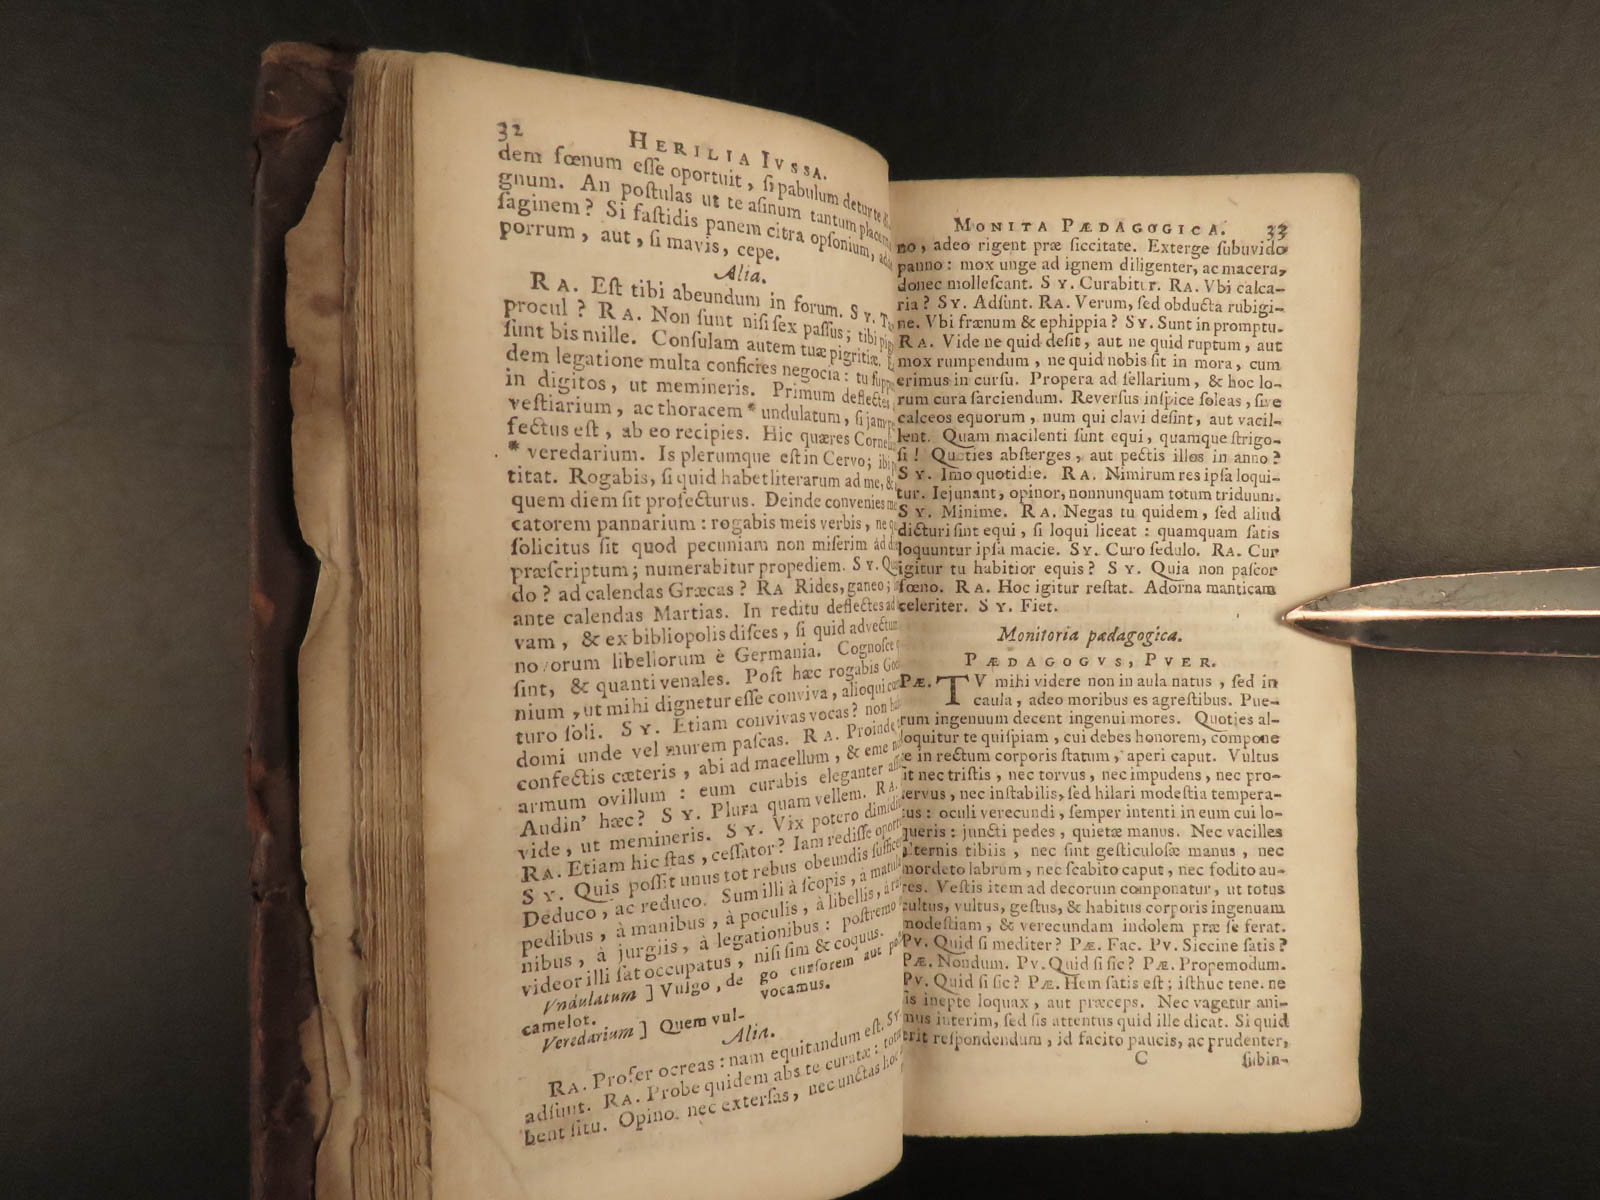 32
HERILIA IVSSA.
dem fœnum eſſe oportuit, ſi pabulum detur te di-
gnum. An poſtulas ut te aſinum tantum placen
ſaginem? Si faſtidis panem citra opſonium, adde
porrum, aut, ſi mavis, cepe.
Alia.
RA. Eſt tibi abeundum in forum. SY. T
procul? RA. Non ſunt niſi ſex paſſus; tibi pig
ſunt bis mille. Conſulam autem tuæ pigritiæ. E
dem legatione multa conficies negocia: tu ſuppu
in digitos, ut memineris. Primum deflectes
veſtiarium, ac thoracem * undulatum, ſi jam pe
fectus eſt, ab eo recipies. Hic quæres Corneli
* veredarium. Is plerumque eſt in Cervo; ibi p
titat. Rogabis, ſi quid habet literarum ad me, &
quem diem ſit profecturus. Deinde convenies me
catorem pannarium: rogabis meis verbis, ne q
ſolicitus ſit quod pecuniam non miſerim ad di
præſcriptum; numerabitur propediem. SY. Qu
do? ad calendas Græcas? RA Rides, ganeo;
ante calendas Martias. In reditu deflectes ad
vam, & ex bibliopolis diſces, ſi quid advectum
novorum libellorum è Germania. Cognoſce
ſint, & quanti venales. Poſt hæc rogabis Goc
nium, ut mihi dignetur eſſe conviva, alioqui cœ
turo ſoli. SY. Etiam convivas vocas? non ha
domi unde vel murem paſcas. RA. Proinde
confectis cæteris, abi ad macellum, & eme n
armum ovillum: eum curabis eleganter aſſ
Audin' hæc? SY. Plura quam vellem. RA.
vide, ut memineris. SY. Vix potero dimidiu
RA. Etiam hic ſtas, ceſſator? Iam rediſſe oport
SY. Quis poſſit unus tot rebus obeundis ſuffice
Deduco, ac reduco. Sum illi à ſcopis, à matul
pedibus, à manibus, à poculis, à libellis, à ra
nibus, à jurgiis, à legationibus: poſtremo
videor illi ſat occupatus, niſi ſim & coquus.
Vndulatum ] Vulgo, de
camelot.
Veredarium ] Quem vul-
go curſorem aut poſ
vocamus.
Alia.
RA. Profer ocreas: nam equitandum eſt. SY
adſunt. RA. Probe quidem abs te curatæ: totæ
bent ſitu. Opino. nec exterſas, nec unctas hoc
MONITA PÆDAGOGICA. 33
no, adeo rigent præ ſiccitate. Exterge ſubuvido
panno: mox unge ad ignem diligenter, ac macera,
donec molleſcant. SY. Curabitur. RA. Vbi calca-
ria? SY. Adſunt. RA. Verum, ſed obducta rubigi-
ne. Vbi frænum & ephippia? SY. Sunt in promptu.
RA. Vide ne quid deſit, aut ne quid ruptum, aut
mox rumpendum, ne quid nobis ſit in mora, cum
erimus in curſu. Propera ad ſellarium, & hoc lo-
rum cura ſarciendum. Reverſus inſpice ſoleas, ſive
calceos equorum, num qui clavi deſint, aut vacil-
lent. Quam macilenti ſunt equi, quamque ſtrigo-
ſi! Quoties abſterges, aut pectis illos in anno?
SY. Imo quotidie. RA. Nimirum res ipſa loqui-
tur. Iejunant, opinor, nonnunquam totum triduum.
SY. Minime. RA. Negas tu quidem, ſed aliud
dicturi ſint equi, ſi loqui liceat: quamquam ſatis
loquuntur ipſa macie. SY. Curo ſedulo. RA. Cur
igitur tu habitior equis? SY. Quia non paſcor
fœno. RA. Hoc igitur reſtat. Adorna manticam
celeriter. SY. Fiet.
Monitoria pædagogica.
PÆDAGOGVS, PVER.
PÆ. TV mihi videre non in aula natus, ſed in
caula, adeo moribus es agreſtibus. Pue-
rum ingenuum decent ingenui mores. Quoties al-
loquitur te quiſpiam, cui debes honorem, compone
te in rectum corporis ſtatum, aperi caput. Vultus
ſit nec triſtis, nec torvus, nec impudens, nec pro-
tervus, nec inſtabilis, ſed hilari modeſtia tempera-
tus: oculi verecundi, ſemper intenti in eum cui lo-
queris: juncti pedes, quietæ manus. Nec vacilles
alternis tibiis, nec ſint geſticuloſæ manus, nec
mordeto labrum, nec ſcabito caput, nec fodito au-
res. Veſtis item ad decorum componatur, ut totus
cultus, vultus, geſtus, & habitus corporis ingenuam
modeſtiam, & verecundam indolem præ ſe ferat.
PV. Quid ſi mediter? PÆ. Fac. PV. Siccine ſatis?
PÆ. Nondum. PV. Quid ſi ſic? PÆ. Propemodum.
PV. Quid ſi ſic? PÆ. Hem ſatis eſt; iſthuc tene. ne
ſis inepte loquax, aut præceps. Nec vagetur ani-
mus interim, ſed ſis attentus quid ille dicat. Si quid
erit reſpondendum, id facito paucis, ac prudenter,
C ſubin-